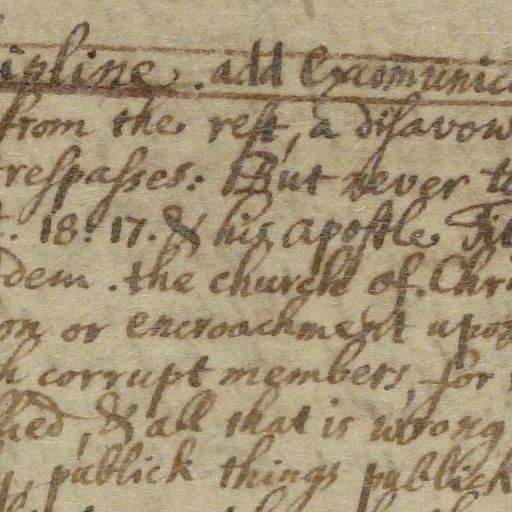 ipline. all Excom̄unic
from the rest, a disavow
trespasses: But never t
t. 18: 17. & his Apostle Tit
dem. the church of Chr
on or encroachment upon
h corrupt members, for
lied, & all that is wrong
publick things publick